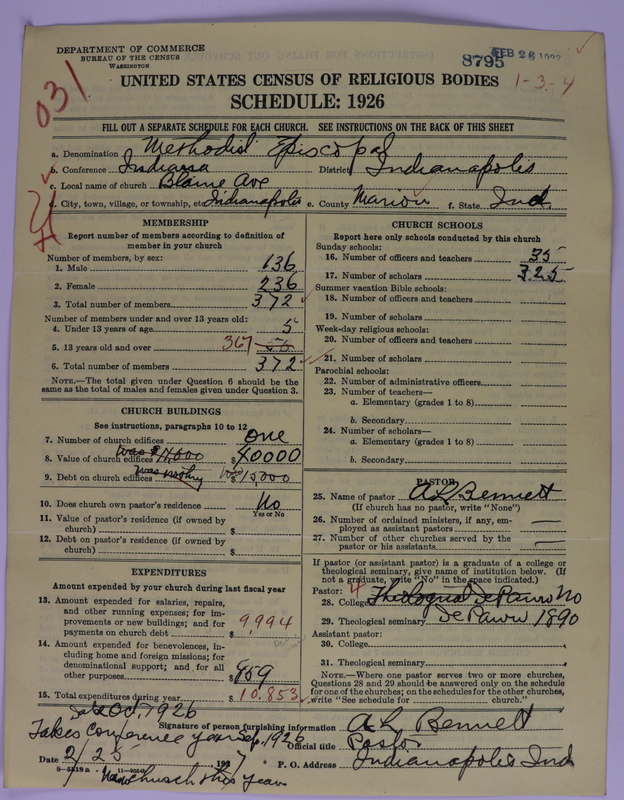 DEPARTMENT OF COMMERCE
BUREAU OF THE CENSUS
WASHINGTON
8795 FEB 26
UNITED STATES CENSUS OF RELIGIOUS BODIES
1-3-4
SCHEDULE: 1926
031
FILL OUT A SEPARATE SCHEDULE FOR EACH CHURCH. SEE INSTRUCTIONS ON THE BACK OF THIS SHEET
a. Denomination Methodist Episcopal
b. Conference Indiana District Indianapolis
c. Local name of church Blaine Ave
d. City, town, village, or township, etc. Indianapolis e. County Marion f. State Ind.
MEMBERSHIP
Report number of members according to definition of member in your church
Number of members, by sex:
1. Male 136
2. Female 236
3. Total number of members 372
Number of members under and over 13 years old:
4. Under 13 years of age 5
5. 13 years old and over 367
6. Total number of members 372
NOTE.—The total given under Question 6 should be the
same as the total of males and females given under Question 3.
CHURCH BUILDINGS
See instructions, paragraphs 10 to 12
7. Number of church edifices One
8. Value of church edifices $40000
9. Debt on church edifices $15,000
10. Does church own pastor's residence No
Yes or No
11. Value of pastor's residence (if owned by
church) $
12. Debt on pastor's residence (if owned by
church) $
EXPENDITURES
Amount expended by your church during last fiscal year
13. Amount expended for salaries, repairs,
and other running expenses; for im-
provements or new buildings; and for
payments on church debt $ 9994
14. Amount expended for benevolences, in-
cluding home and foreign missions; for
denominational support; and for all
other purposes $ 859
15. Total expenditures during year $ 10.853
CHURCH SCHOOLS
Report here only schools conducted by this church
Sunday schools:
16. Number of officers and teachers 35
17. Number of scholars 325
Summer vacation Bible schools:
18. Number of officers and teachers
19. Number of scholars
Week-day religious schools:
20. Number of officers and teachers
21. Number of scholars
Parochial schools:
22. Number of administrative officers
23. Number of teachers—
a. Elementary (grades 1 to 8)
b. Secondary
24. Number of scholars—
a. Elementary (grades 1 to 8)
b. Secondary
PASTOR
25. Name of pastor A L Bennett
(If church has no pastor, write "None")
26. Number of ordained ministers, if any, em-
ployed as assistant pastors —
27. Number of other churches served by the
pastor or his assistants —
If pastor (or assistant pastor) is a graduate of a college or
theological seminary, give name of institution below. (If
not a graduate, write "No" in the space indicated.)
Pastor:
28. College Theological DePauw No
29. Theological seminary De Pauw 1890
Assistant pastor:
30. College
31. Theological seminary
NOTE.—Where one pastor serves two or more churches,
Questions 28 and 29 should be answered only on the schedule
for one of the churches; on the schedules for the other churches,
write "See schedule for church."
Oct, 1926
Signature of person furnishing information A L Bennett
Takes Conference year Sep. 1926
Official title Pastor
Date 2/25 1927
P. O. Address Indianapolis Ind
church this year